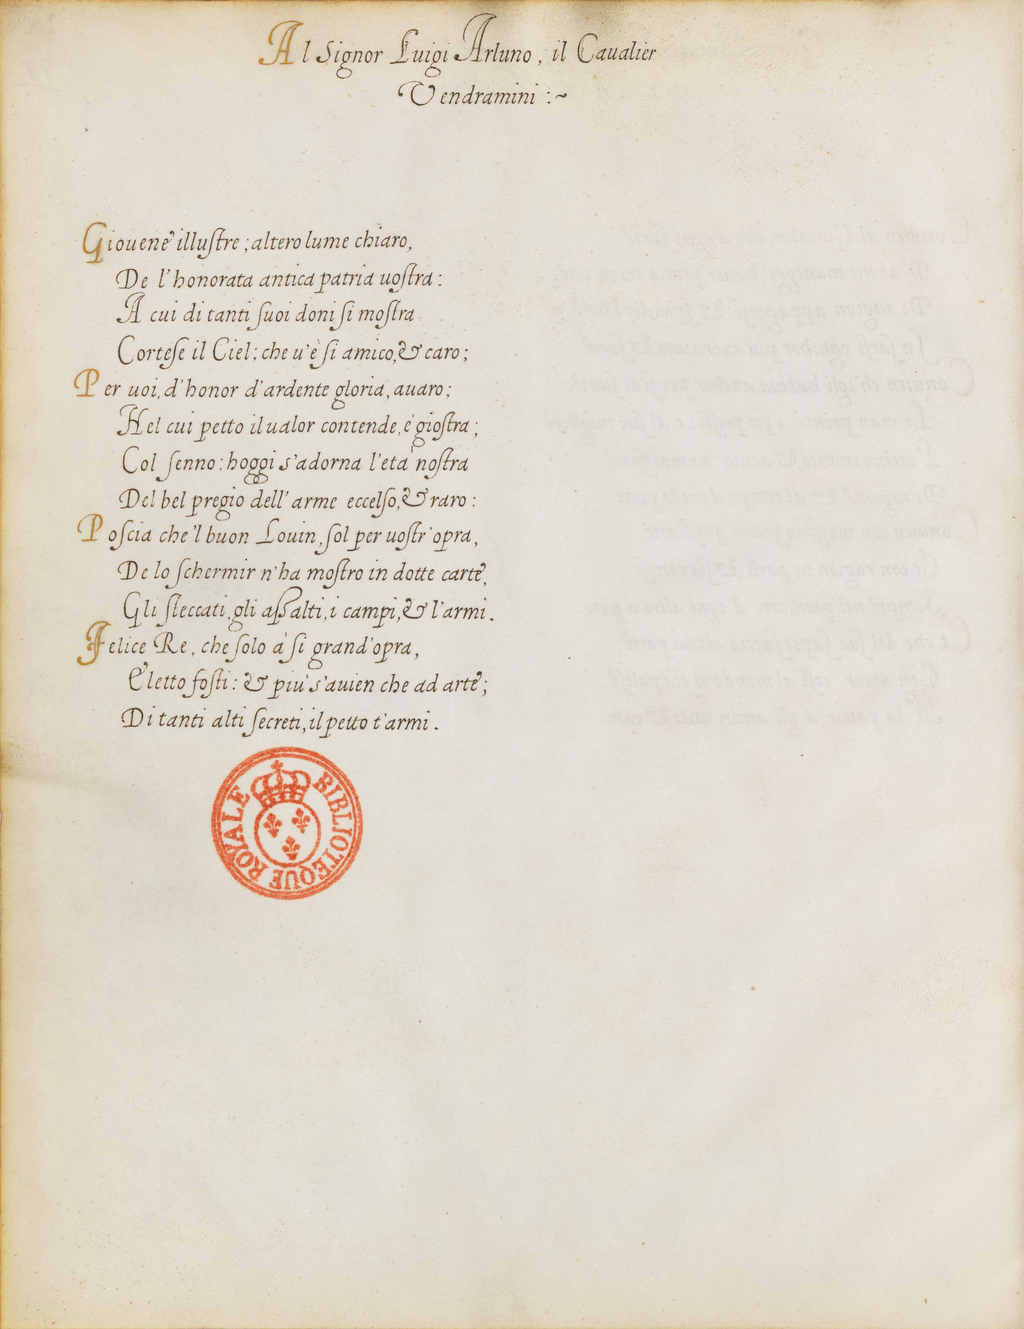 Al Signor Luigi Arluno, il Caualier
Vendramini :~
Giouene illustre; altero lume chiaro,
De l'honorata antica patria uostra:
A cui di tanti suoi doni si mostra
Cortese il Ciel; che u'è si amico, & caro;
Per uoi, d'honor d'ardente gloria, auaro;
Nel cui petto il ualor contende, e' giostra;
Col senno: hoggi s'adorna l'età nostra
Del bel pregio dell'arme eccelso, & raro:
Poscia che 'l buon Louin, sol per uostr'opra,
De lo schermir n'ha mostro in dotte carte,
Gli steccati, gli assalti, i campi, & l'armi.
Felice Re, che solo à si grand'opra,
Eletto fosti: & piu s'auien che ad arte;
Di tanti alti secreti, il petto t'armi.
BIBLIOTEQUE ROYALE